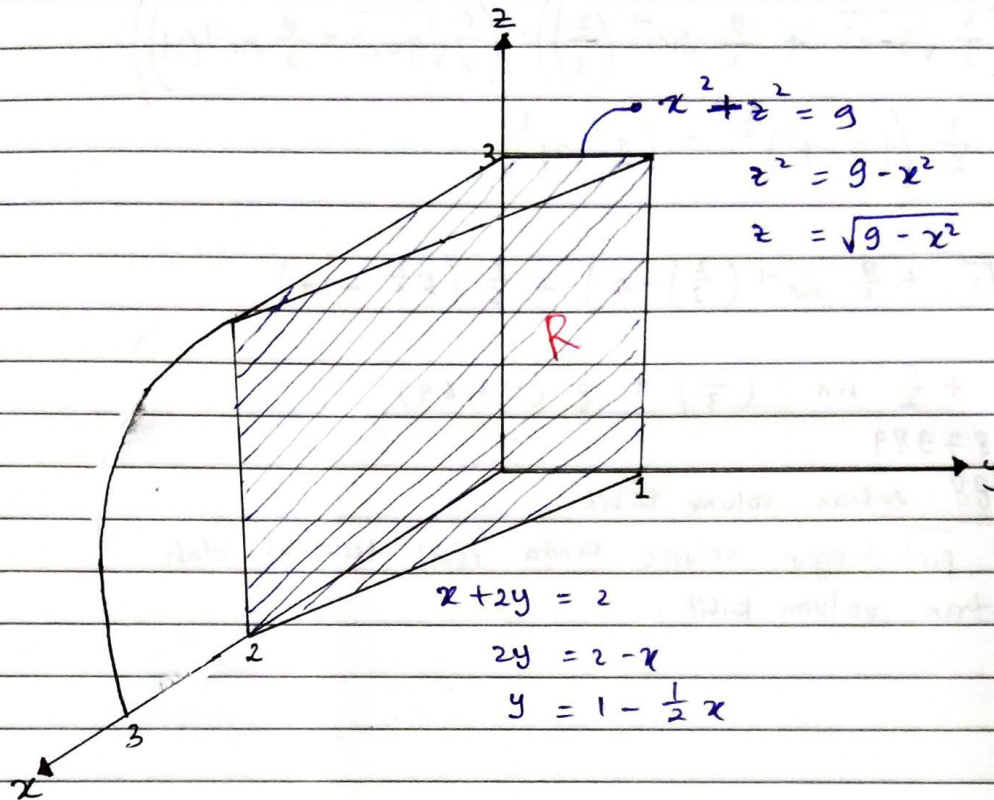 z
x² + z² = 9
3
z² = 9 - x²
z = √9 - x²
R
1
x + 2y = 2
2
2y = 2 - x
y = 1 - 1/2 x
3
x